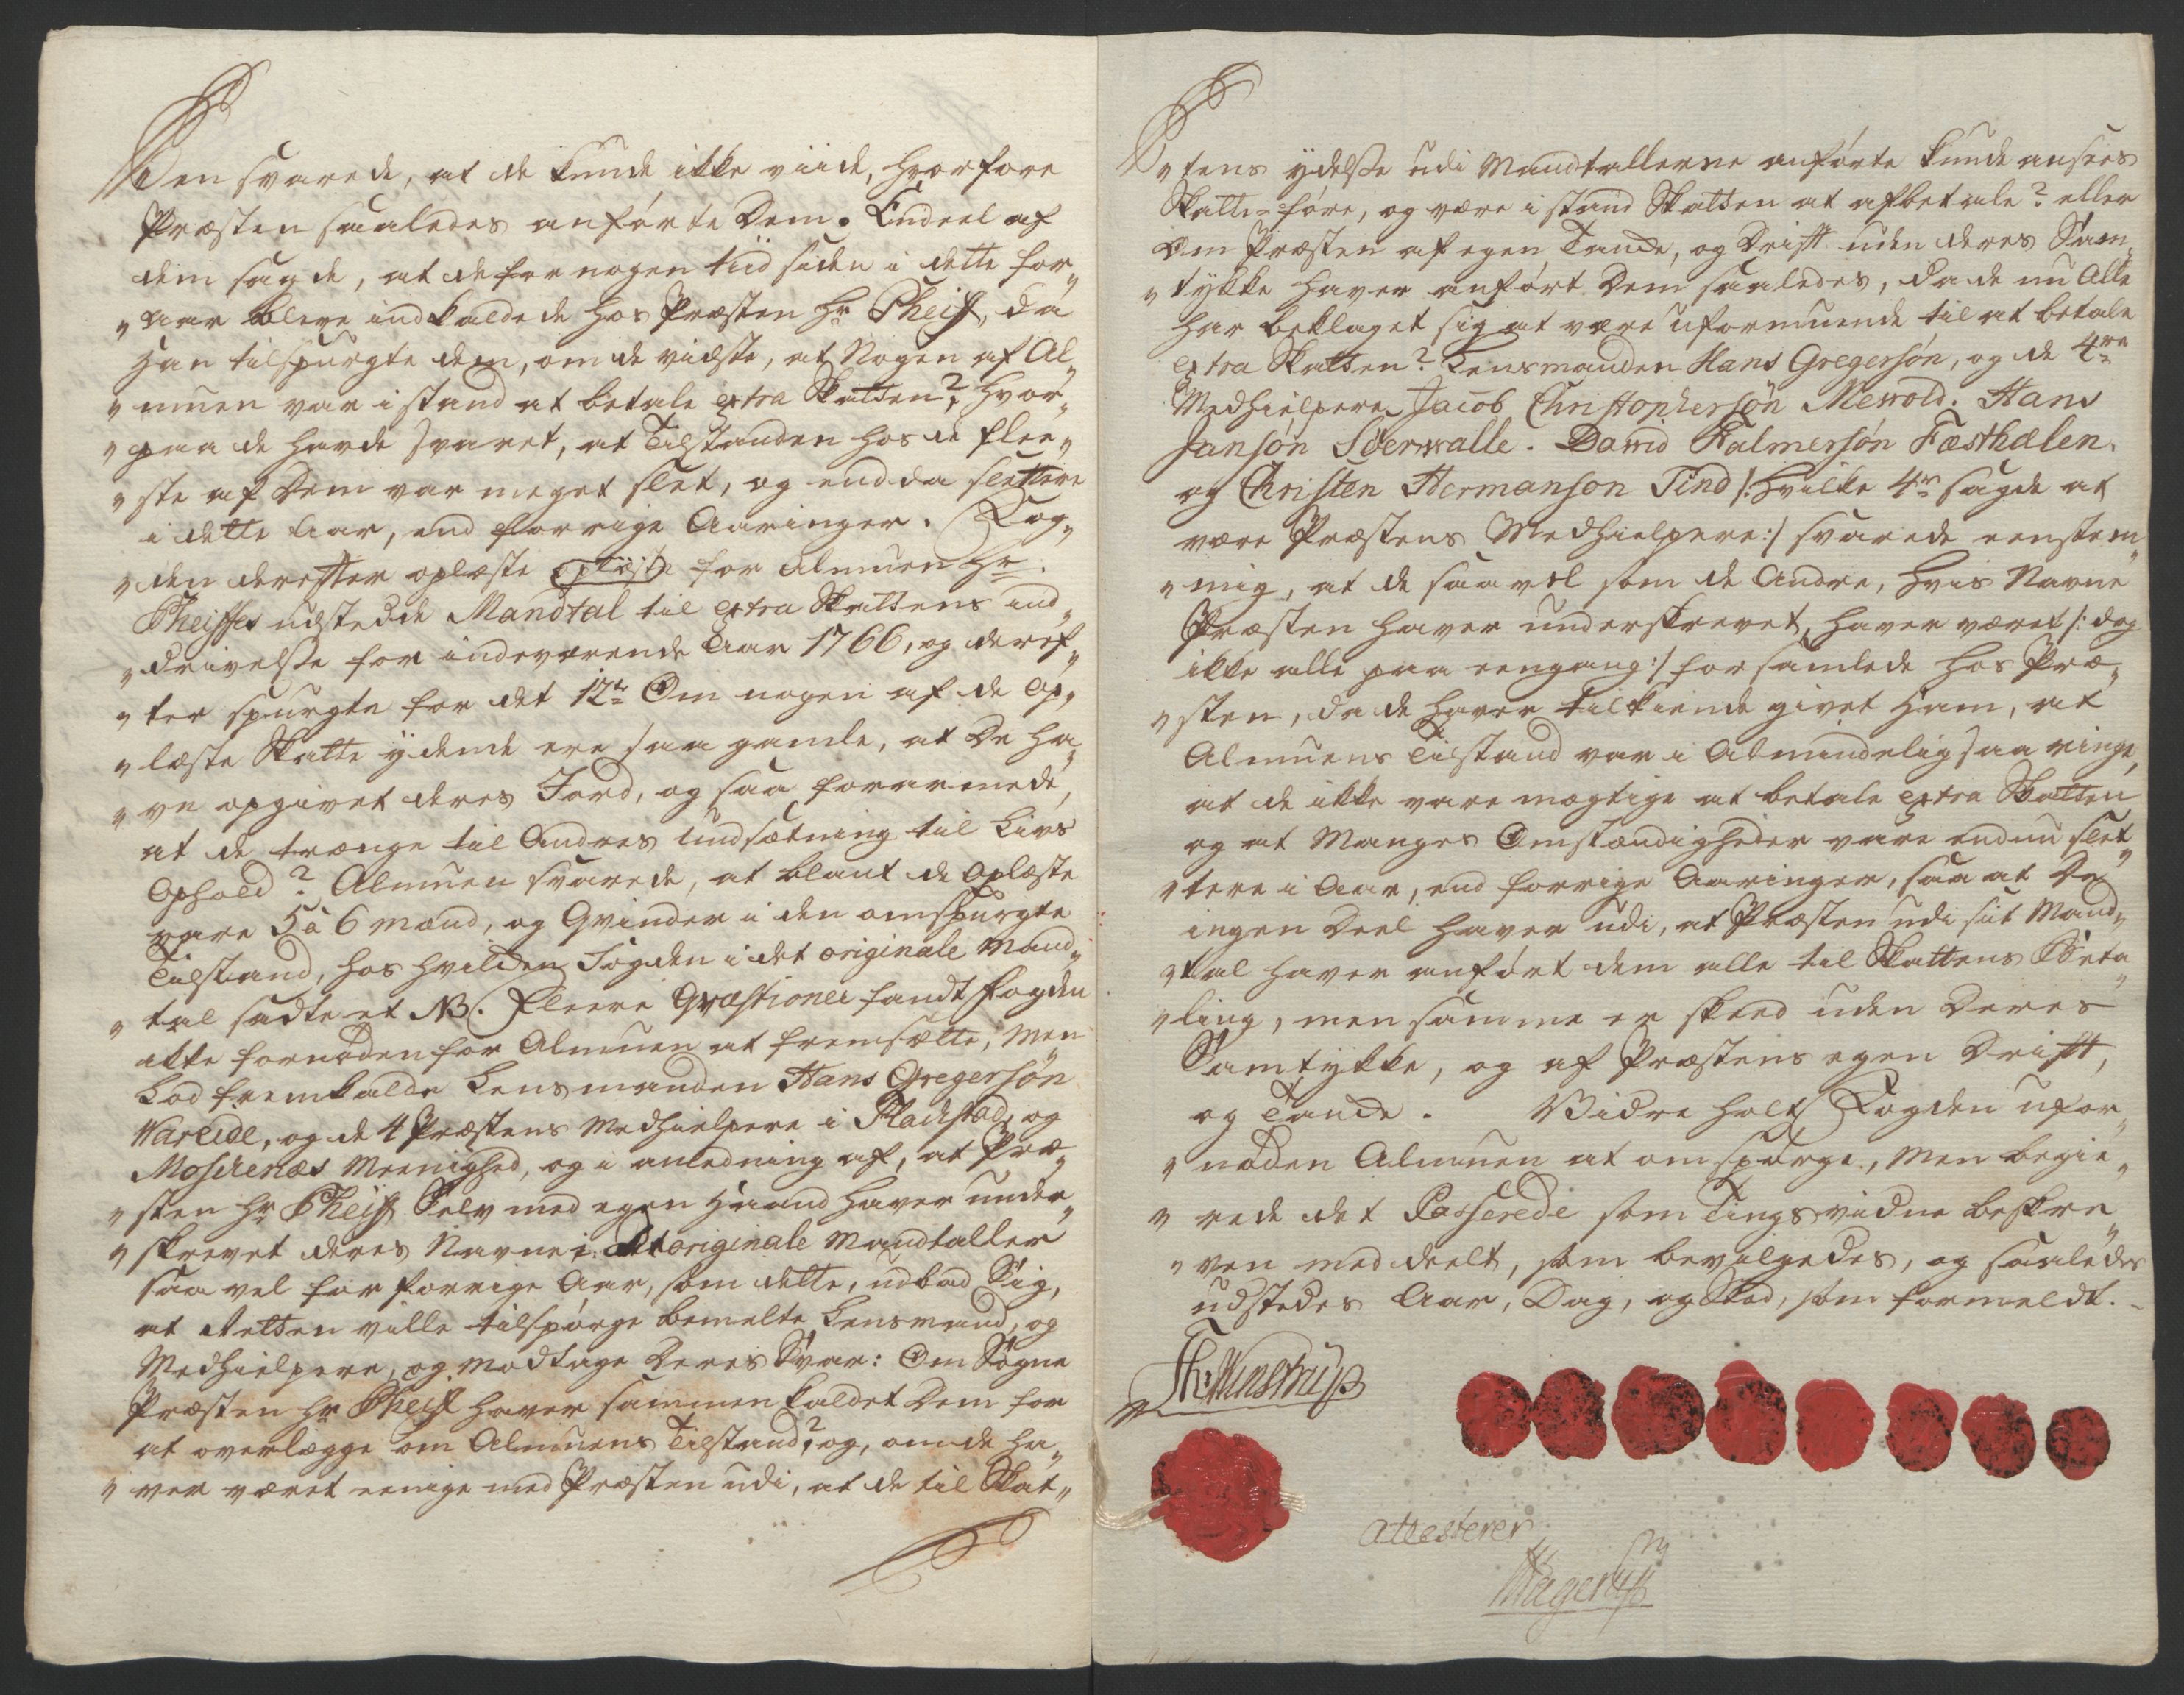 en svarede, at de kunde ikke viide, hvorfore
Præsten saaledes anførte Dem. Endeel af
dem sagde, at de for nogen tiid siden i dette for„
„aar bleve indkaldede hos Præsten Hr Pheiff, da
han tilspurgte dem, om de vidste, at Nogen af Al„
„muen var i stand at betale extra Skatten?, hvor„
„paa de havde svaret, at Tilstanden hos de flee„
„ste af Dem var meget slet, og endda slettere
i dette Aar, end forrige Aaringer. Fog„
„den derefter oplæste for Almuen Hr.
Pheiffes udstedde Mandtal til extra Skattens ind„
„drivelse for indeværende Aar 1766, og deref„
„ter spurgte for det 12te Om nogen af de op„
„læste Skatte ydende ere saa gamle, at De ha„
„ve opgivet deres Jord, og saa forarmede,
at de trænge til Andres Undsætning til Livs
Ophold? Almuen svarede, at blant de Oplæste
vare 5 à 6 mænd, og Qvinder i den omspurgte
Tilstand, hos hvilken Fogden i det originale Mand„
„tal sadte et NB. Fleere Qvæstioner fandt Fogden
ikke fornøden for Almuen at fremsætte, Men
Lod fremkalde Lensmanden Hans Gregersøn
Nareide, og de 4 Præstens Medhielpere i Flachstad, og
Moschenæs Meenighed, og i anledning af, at Præ„
„sten Hr Pheiff Selv med egen Haand haver under„
„skrevet deres Navne i originale Mandtaller
saa vel for forrige Aar, som dette, udbad Sig,
at Retten ville tilspørge bemelte Lensmand, og
Medhielpere, og modtage Deres Svar: Om Sogne
Præsten Hr Pheiff haver sammen kaldet Dem for
at overlægge om Almuens Tilstand?, og, om de ha„
„ver været eenige med Præsten udi, at de til Skat„
„tens ydelse udi Mandtallerne anførte kunde ansees
Skatte-føre, og være i stand Skatten at afbetale? eller
Om Præsten af egen Tanke, og Drift uden deres Sam„
„tykke haver anført Dem saaledes, da de nu Alle
har beklaget sig at være uformuende til at betale
extra Skatten? Lensmanden Hans Gregersøn, og de 4re
Medhielpere Jacob Christophersøn Mewold. Hans
Jansøn Sderwalle. Dawid Falmersøn Fæsthælen.
og Christen Hermanson Tind /: hvilke 4re sagde at
være Præstens Medhielpere :/ svarede eenstem„
„mig, at de saavel som de Andre, hvis Navne
Præsten haver underskrevet, haver været /: dog
ikke alle paa eengang :/ forsamlede hos Præ„
„sten, da de haver tilkiende givet ham, at
Almuens Tilstand var i Almindelig saa ringe,
at de ikke vare mægtige at betale extra Skatten
og at Manges Omstændigheder vare endnu slet„
„tere i Aar, end forrige Aaringer, saa at De
ingen Deel haver udi, at Præsten udi sit Mand„
„tal haver anført dem alle til Skattens Beta„
„ling, men samme er skeed uden Deres
Samtykke, og af Præstens egen Drift,
og Tanke. Vidre holt Fogden ufor„
„nøden Almuen at omspørge, Men begie„
„rede det Passerede som Tingsvidne beskre„
„ven meddeelt, som bevilgedes, og saaledes
udstedes Aar, Dag, og Sted, som formeldt.
Attesterer